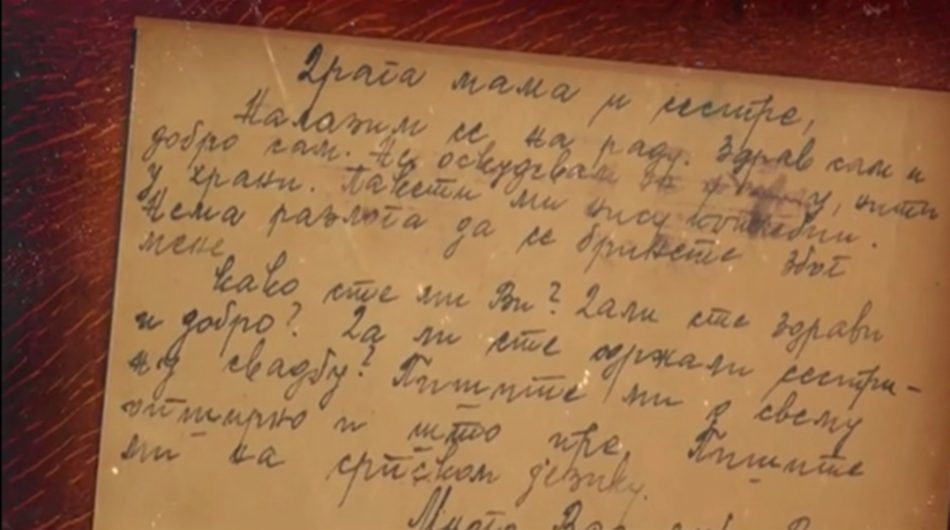 Драга мама и сестре,
Налазим се на раду. Здрав сам и
добро сам. Не оскудевам у, нити
у храни. Пакети ми нису потребни.
Нема разлога да се бринете због
мене.
Како сте ми Ви? Дали сте здрави
и добро? Да ли сте одржали сестри-
ну свадбу? Пишите ми о свему
опширно и што пре. Пишите
ми на српском језику.
Много Вас